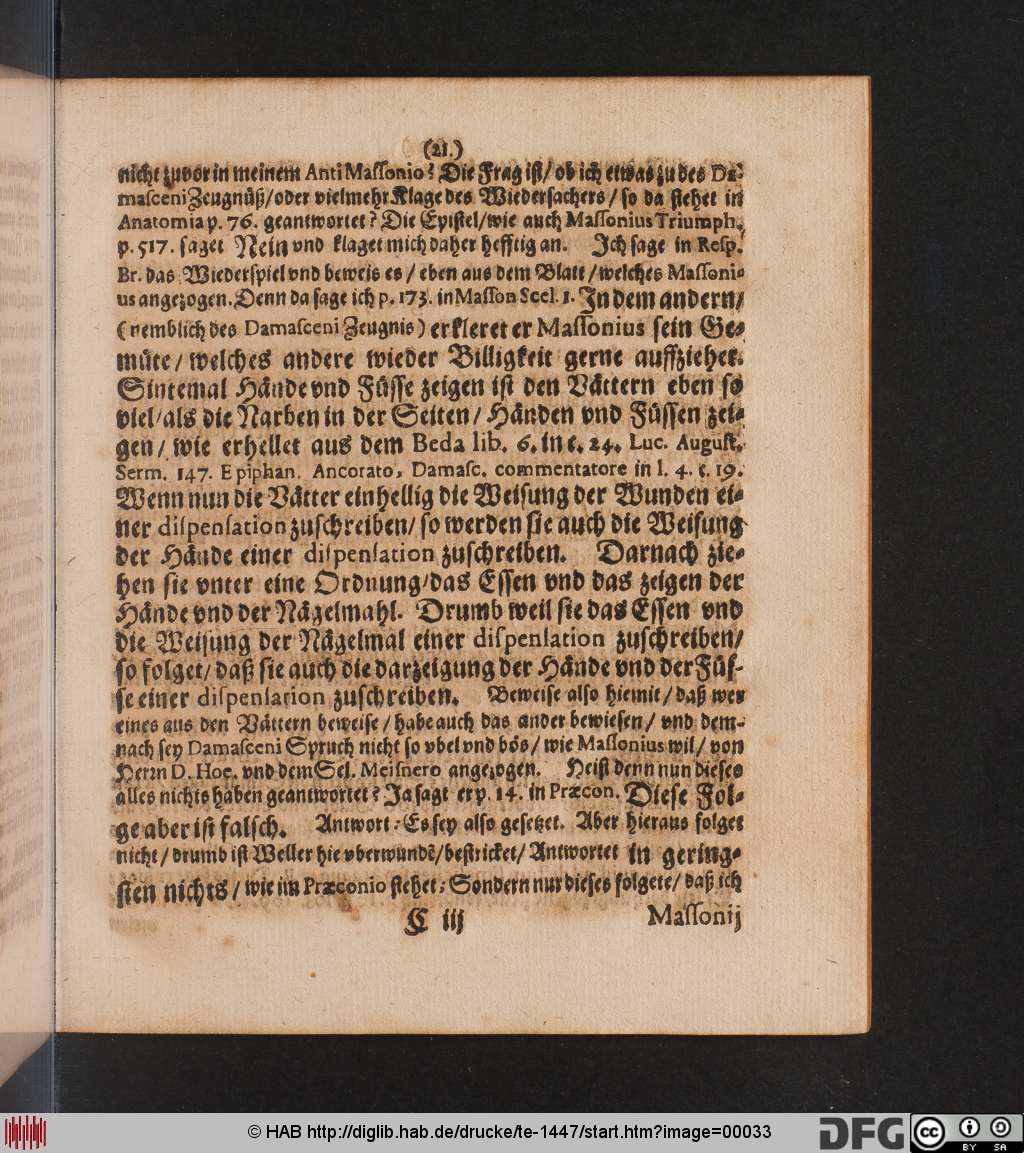 (21.)
nicht zuvor in meinem Anti Massonio? Die Frag ist/ ob ich etwas zu des Da-
masceni Zeugnüß/ oder vielmehr Klage des Wiedersachers/ so da stehet in
Anatomia p. 76. geantwortet? Die Epistel/ wie auch Massonius Triumph.
p. 517. saget Nein vnd klaget mich daher hefftig an. Ich sage in Resp.
Br. das Wiederspiel vnd beweis es/ eben aus dem Blatt/ welches Massoni-
us angezogen. Denn da sage ich p. 173. in Masson Scel. 1. In dem andern/
(nemblich des Damasceni Zeugnis) erkleret er Massonius sein Ge-
müte/ welches andere wieder Billigkeit gerne auffziehet.
Sintemal Hände vnd Füsse zeigen ist den Vättern eben so
viel/ als die Narben in der Seiten/ Händen vnd Füssen zei-
gen/ wie erhellet aus dem Beda lib. 6. in c. 24. Luc. August.
Serm. 147. Epiphan. Ancorato, Damasc. commentatore in l. 4. c. 19.
Wenn nun die Vätter einhellig die Weisung der Wunden ei-
ner dispensation zuschreiben/ so werden sie auch die Weisung
der Hände einer dispensation zuschreiben. Darnach zie-
hen sie vnter eine Ordnung/ das Essen vnd das zeigen der
Hände vnd der Nägelmahl. Drumb weil sie das Essen vnd
die Weisung der Nägelmal einer dispensation zuschreiben/
so folget/ daß sie auch die darzeigung der Hände vnd der Füs-
se einer dispensation zuschreiben. Beweise also hiemit/ daß wer
eines aus den Vättern beweise/ habe auch das ander bewiesen/ vnd dem-
nach sey Damasceni Spruch nicht so vbel vnd bös/ wie Massonius wil/ von
Herrn D. Hoe. vnd dem Sel. Meisnero angezogen. Heist denn nun dieses
alles nichts haben geantwortet? Ja sagt er p. 14. in Præcon. Diese Fol-
ge aber ist falsch. Antwort: Es sey also gesetzet. Aber hieraus folget
nicht/ drumb ist Weller hie vberwundē/ bestricket/ Antwortet in gering-
sten nichts/ wie im Præconio stehet: Sondern nur dieses folgete/ daß ich
C iij
Massonij
© HAB http://diglib.hab.de/drucke/te-1447/start.htm?image=00033
DFG
cc
BY SA